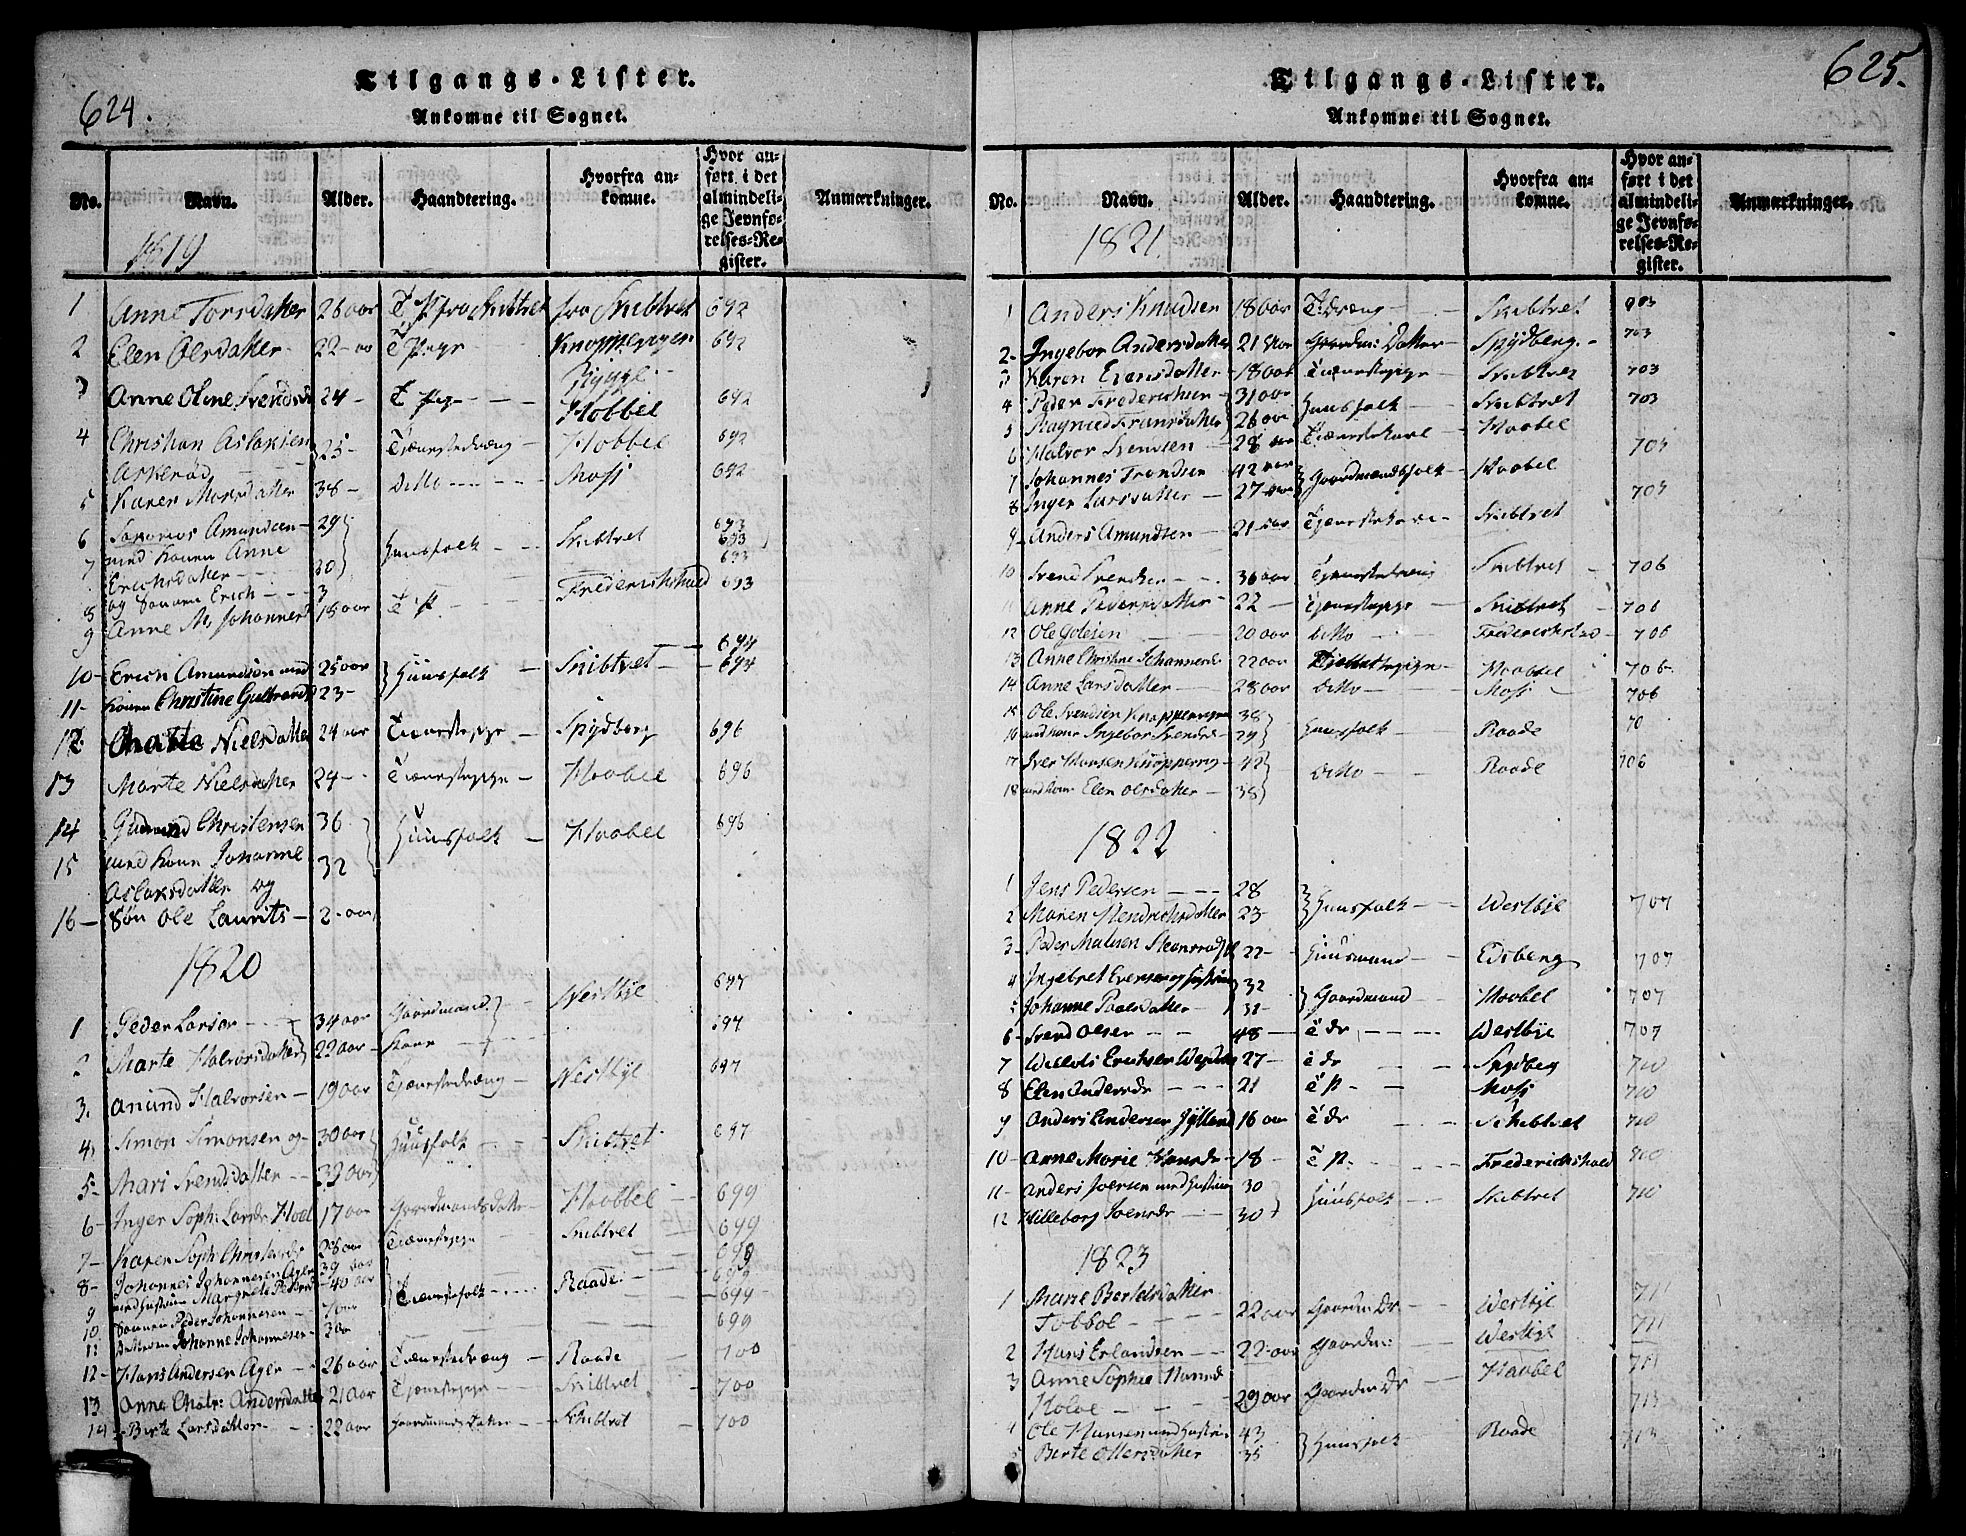 624.
Tilgangs-Lister.
Ankomne til Sognet.
No. Navn. Alder. Haandtering. Hvorfra ankomne. Hvor anført i det almindelige Jevnførelses-Register. Anmærkninger.
1819
1 Anne Torsdatter 26 aar T P fra Skibtvet fra Skibtvet 692
2 Elen Olersdatter 22 - aa T Pige Knoppe Rygge 692
3 Anne Oline Svends 24 - T Pig - - - Hobbel 692
4 Christian Aslaksen 25 - Tjenestedræng - Hobbel 692
Askerød
5 Karen Morsdatter 38 - Ditto - - - - Moss 692
6 Amundsen - 29 Huusfolk - - - Skibtvet 693
7 med Konen Anne 30 693
Erichsdatter - - 693
8 og Sønnen Erich - - - 3
9 Anne M. Johannesd 18 aar T P - - Frederichshald 693
694
10 - Erich Amundsen med 25 aar Huusfolk - Skibtvet - - 694
11 - konen Christine Gulbrands 23 -
12 Nielsdatter 24 aar Tienestepige - Spydberg 696
13 Marte Nielsdatter 24 - - Tienestepige - Hoobel 696
14 Gudmund Christensen 36 Huusfolk - Hoobel 696
15 med Konen Johanne 32
Aslaksdatter og
16 - Søn Ole Laurits - 2 - aar
1820
1 Peder Larsen - - 34 aar Gaardmand - - Westbye 697
2 Marte Halvorsdatter 22 aar - Kone - 697
3. Amund Halvorsen - 19 aar Tjenestedræng - Westbye 697
4 Simon Simonsen og - 30 aar Huusfolk - - Skibtvet - 697
5 - Mari Svendsdatter - - 33 aar
6 - Inger Soph: Larsdr Hoel 17 aar Gaardmandsdatter - Hoobel - - 699
7 - Karen Soph: 28 aar Tienestepige Skibtvet 699
8 - Johannes Johannesen Ager 39 aar Tienestfolk Raade - 699
9 med Hustru Margrete - 40 aar 699
10. Sønnen Peder Johannesen - 7 aar 699
11 Datteren Johanne Johannesen - 3 aar 699
12 - Hans Andersen Ager - - 26 aar Tienestedræng - Raade 700
13 Anne Andersdatter 21 aar Tjenestepige - Skibtvet 700
14 - Berte Larsdatter - - 22 aar Gaardmands Datter - Skibtvet - 700
625.
Tilgangs-Lister.
Ankomne til Sognet.
No. Navn. Alder. Haandtering. Hvorfra ankomne. Hvor anført i det almindelige Jevnførelses-Register. Anmærkninger.
1821.
1 Anders Knudsen 18 aar T: dræng - - - Skibtvet 703
2 - Ingebor Andersdatter 21 aar Gaardm: Datter - Spydberg - 703
3 Karen Evensdatter - 18 aar Tienestepige - Skibtvet 703
4 Peder Frederichsen - 31 aar Huusfolk - - - Skibtvet 703
5 Ragnild Fransdatter 26 aar
6 Halvor Svendsen - 28 aar Tienestekarl - Hoobel
7 Johannes Trondsen 42 aar Gaardmandsfolk - Hoobel 705
8 Inger Larsdatter - 27 aar
9 Anders Amundsen 21 aar Tjenestekarl - Skibtvet 705
10 Svend Svendsen - - 36 aar Tjenestedreng Skibtvet - 706
11 Anne Pedersdatter - 22 - Tjenestepige - Skibtvet - 706
12 Ole Golesen 20 aar ditto - - Frederichstad - 706
13 Anne Christine Johannesdr 22 aar Tienestepige - Hoobel 706
14 Anne Larsdatter 28 aar ditto - - Moss 706
15 Ole Svendsen 38 Huusfolk - - Raade 70
16 med Kone Ingebor Svendsdr 29
17 Iver Hansen 42 ditto - - Raade 706
18 med Kone Elen Olsdatter - 38
1822
1 Jens Pedersen - - - 28 Huusfolk - - Westbye 707
2 Maren Hendrichsdatter 23 -
3 - Peder 22 - Huusmand - Eidsberg 707
4 Ingebret Eversen og Hustru 32 Gaardmand - - Hoobel 707
5 Johanne Paalsdatter - 31 -
6 - Svend Olsen - - 48 - T dr - - - - Westbye 707
7 Erichsen 27 - T dr - - Spydberg 710
8 Elen Andersdr - - - 21 T P - - Moss 710
9 Anders Andersen 16 aar T dr - - Schibtvet 710
10 - Anne Marie Hansdr - 18 - T P. - - - - Frederichshald 710
11 - Anders Joersen med Hustru 30 Huusfolk - - Skibtvet 710
12 Hilleborg Svensdr - - 30
1823
1 Marie Bertelsdatter
Tobbol - - - 22 aar Gaardm Dr - - Westbye 711
2 Hans Erlandsen - - 22 - aar Gaardm: Westbye 711
3 Anne Sophie Hansd 711
- - - 29 aar Gaardm Dr Haabel 713
4 Ole Hansen med Hustru - 43 Huusfolk - Raade 713
5 Berte Ollersdatter 35